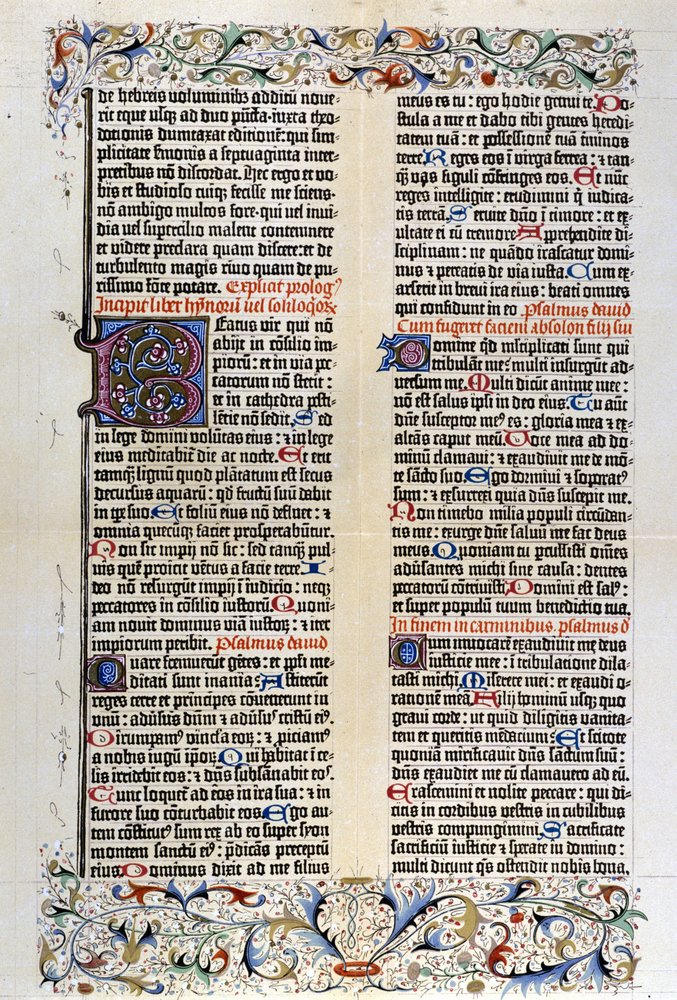 de hebreis voluminibꝫ additū nove-
rit eque usqꝫ ad duo pūcta·iuxta theo-
dotionis dumtaxat editionē: qui sim-
plicitate s̄monis a septuaginta inter-
pretibus nō discordat. Hec ergo et vo-
bis et studioso cuiqꝫ fecisse me sciens·
nō ambigo multos fore·qui vel invi-
dia vel supercilio malent contemnere
et videre preclara quam discere: et de
turbulento magis rivo quam de pu-
rissimo fōte potare. Explicit prologꝰ
Incipit liber hymnorū vel soliloqorꝝ
Beatus vir qui nō
abijt in cōsilio im-
piorū: et in via pec-
catorum nō stetit:
et in cathedra pesti-
lētie nō sedit. Sed
in lege domini volūtas eius: & in lege
eius meditabit̄ die ac nocte. Et erit
tamqꝫ lignū quod plātatum est secus
decursus aquarū: qd̄ fructū suū dabit
in tp̄e suo. Et foliū eius nō defluet: &
omnia quecūqꝫ faciet prosperabūtur.
Non sic impij nō sic: sed tamqꝫ pul-
vis quē proicit ventus a facie terre. I-
deo nō resurgūt impij ī iudicio: neqꝫ
peccatores in cōsilio iustorū. Quoni-
am novit dominus viam iustorū: & iter
impiorum peribit. Psalmus david
Quare fremuerūt gētes: et ppl̄i me-
ditati sunt inania: Astiterūt
reges terre et principes cōvenerunt in
unū: adūsus dn̄m & adūsus cristū eiꝰ.
Dirumpamꝰ vincla eorꝫ: & piciamꝰ
a nobis iugū ipoꝝ. Qui habitat ī ce-
lis irridebit eos: & dn̄s subsānabit eoſ
Tunc loquet̄ ad eos in ira sua: & in
furore suo cōturbabit eos. Ego au-
tem cōstitutꝰ sum rex ab eo super syon
montem sanctū eiꝰ: p̄dicās preceptū
eius. Dominus dixit ad me filius
meus es tu: ego hodie genui te. Po-
stula a me et dabo tibi gētes heredi-
tatem tuā: et possessionē tuā t̄minos
terre. Reges eos ī virga ferrea: & tan-
qꝫ vas figuli cōfringes eos. Et nūc
reges intelligite: erudimini q̄ iudica-
tis terrā. Servite dn̄o ī timore: et ex-
ultate ei cū tremore. Apprehēdite di-
sciplinam: ne quādo irascatur domi-
nus & pereatis de via iusta. Cum ex-
arserit in brevi ira eius: beati omnes
qui confidunt in eo. Psalmus david
Cum fugeret faciem absolon filij sui
Domine qd̄ mltiplicati sunt qui
tribulāt me: multi insurgūt ad-
versum me. Multi dicūt anime mee:
nō est salus ipsi in deo eius. Tu aūt
dn̄e susceptor meꝰ es: gloria mea & ex-
altās caput meū. Voce mea ad do-
minū clamavi: & exaudivit me de mō-
te sācto suo. Ego dormivi & soporatꝰ
sum: & exsurrexi quia dn̄s suscepit me.
Non timebo milia populi circūdan-
tis me: exurge dn̄e salvū me fac deus
meus. Quoniam tu percussisti om̄es
adūsantes michi sine causa: dentes
peccatorū cōtrivisti. Domini est salꝰ:
et super populū tuum benedictio tua.
In finem in carminibus. psalmus d̄
Cum invocarē exaudivit me deus
iusticie mee: ī tribulatione dila-
tasti michi. Miserere mei: et exaudi o-
rationē meā. Filij hominū usqꝫ quo
gravi corde: ut quid diligitis vanita-
tem et queritis mēdacium: Et scitote
quoniā mirificavit dn̄s sanctum suū:
dn̄s exaudiet me cū clamavero ad eū.
Irascemini et nolite peccare: qui di-
citis in cordibus vestris in cubilibus
vestris compungimini. Sacrificate
sacrificiū iusticie & sperate in domino:
multi dicunt qͥs ostendit nobis bona.